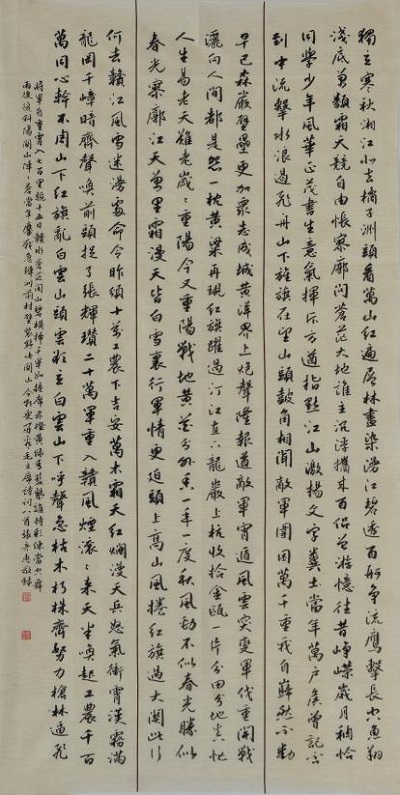 獨立寒秋湘江北去橘子洲頭看萬山紅遍層林盡染漫江碧透百舸爭流鷹擊長空魚翔
淺底萬類霜天競自由悵寥廓問蒼茫大地誰主沉浮攜來百侶曾游憶往昔崢嶸歲月稠恰
同學少年風華正茂書生意氣揮斥方遒指點江山激揚文字糞土當年萬戶侯曾記否
到中流擊水浪遏飛舟山下旌旗在望山頭鼓角相聞敵軍圍困萬千重我自巋然不動
早已森嚴壁壘更加眾志成城黃洋界上炮聲隆報道敵軍宵遁風雲突變軍伐重開戰
灑向人間都是怨一枕黃粱再現紅旗躍過汀江直下龍巖上杭收拾金甌一片分田分地真忙
人生易老天難老歲々重陽今又重陽戰地黃花分外香一年一度秋風勁不似春光勝似
春光寥廓江天萬里霜漫天皆白雪裏行軍情更迫頭上高山風捲紅旗過大關此行
何去贛江風雪迷漫處命令昨頒十萬工農下吉安萬木霜天紅爛漫天兵怒氣衝霄漢霧滿
龍岡千嶂暗齊聲喚前頭捉了張輝瓚二十萬軍重入贛風煙滾々來天半喚起工農千百
萬同心幹不周山下紅旗亂白雲山頭雲欲立白雲山下呼聲急枯木朽株齊努力槍林逼飛
將軍自重霄入七百里驅十五日贛水蒼茫閩山碧橫掃千軍如捲席赤橙黃綠青藍紫誰持彩練當空舞
雨後復斜陽關山陣々蒼當年鏖戰急彈洞前村壁裝點此關山今朝更好看毛主席詩詞八首張敬錄